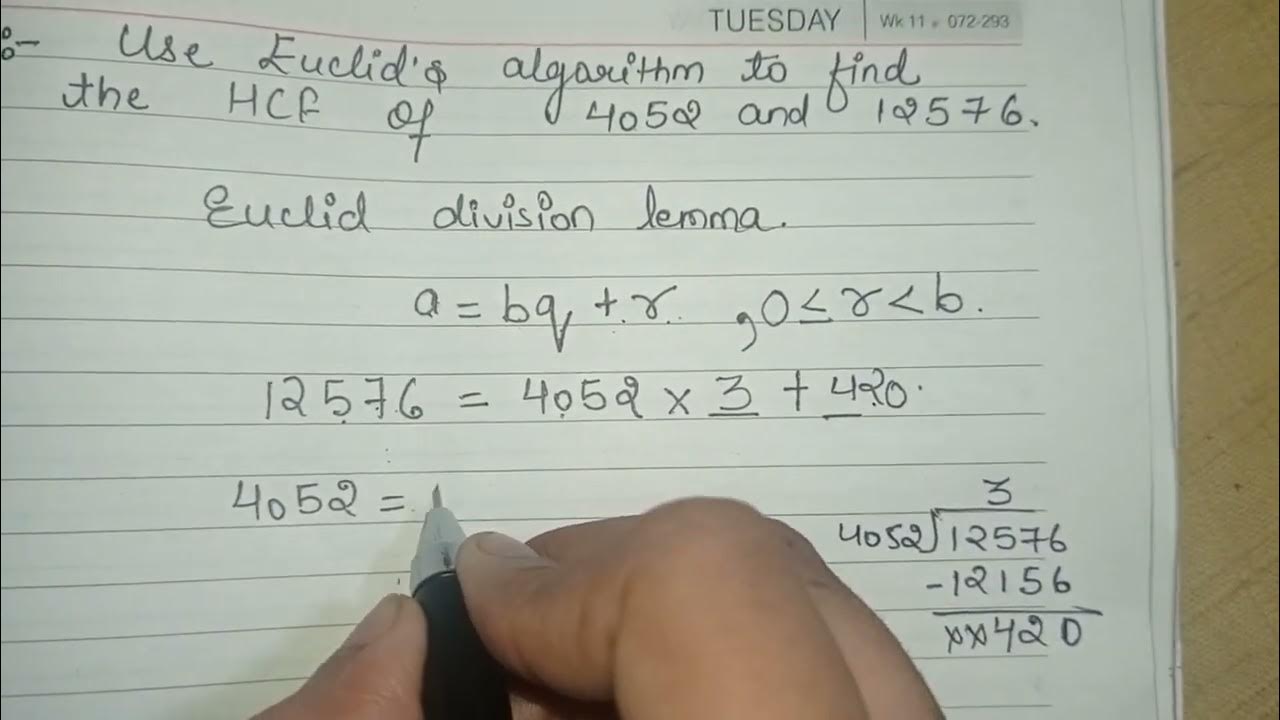 TUESDAY Wk 11 • 072-293
:- Use Euclid's algorithm to find
the HCF of 4052 and 12576.
Euclid division lemma.
a = bq + r. , 0 ≤ r < b.
12576 = 4052 × 3 + 420.
4052 =
3
4052)12576
-12156
xx420